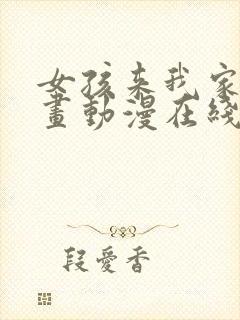 女孩来我家
畫動漫在綫
段愛香